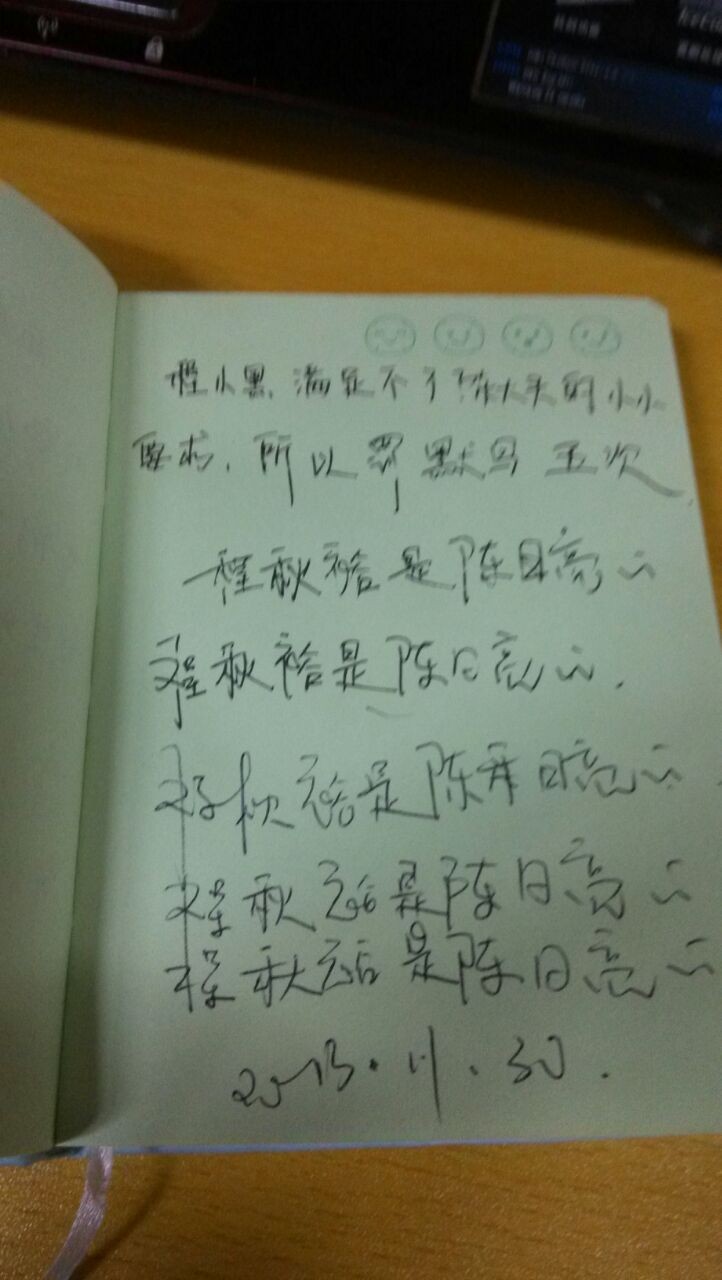 程小黑满足不了陈大头的小小
要求,所以罚默写五次
程秋裕是陈日亮的
程秋裕是陈日亮的.
程秋裕是陈日亮的.
程秋裕是陈日亮的
程秋裕是陈日亮的
2013.11.30.